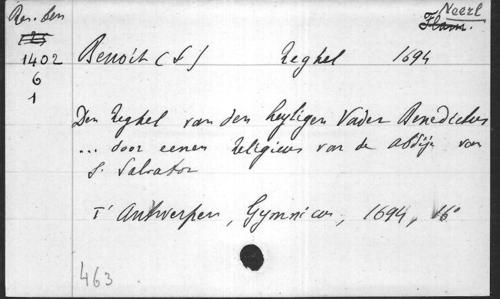 Res. Den
Neerl
Flam.
1402
6
1
Benoit (S) Reghel 1694
Den Reghel van den heyligen Vader Benedictus
... door eenen religieus van de abdije van
S. Salvator
T' Antwerpen, Gymnicus, 1694, 16°
463